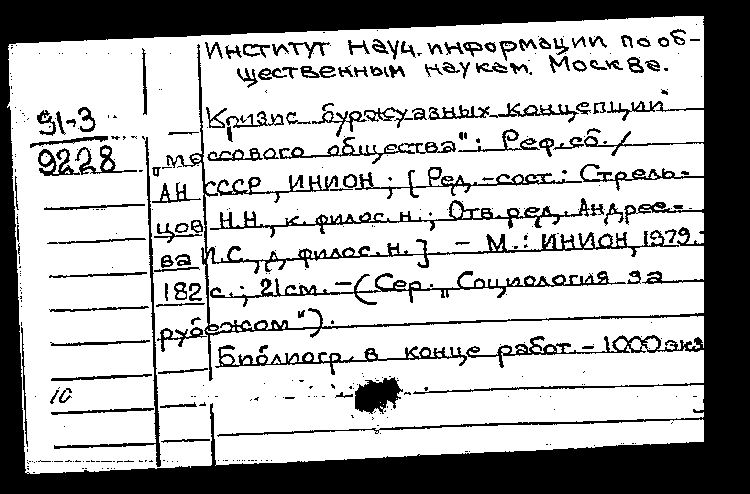 Институт науч. информации по об-
щественным наукам. Москва.
91-3
9228
Кризис буржуазных концепций
„массового общества": Реф. сб. /
АН СССР, ИНИОН; [Ред.-сост.: Стрель-
цов Н.Н., к. филос. н.; Отв. ред. Андрее-
ва И.С., д. филос. н.] – М.: ИНИОН, 1979.-
182 с.; 21 см. – (Сер. „Социология за
рубежом").
Библиогр. в конце работ. – 1000 экз
10